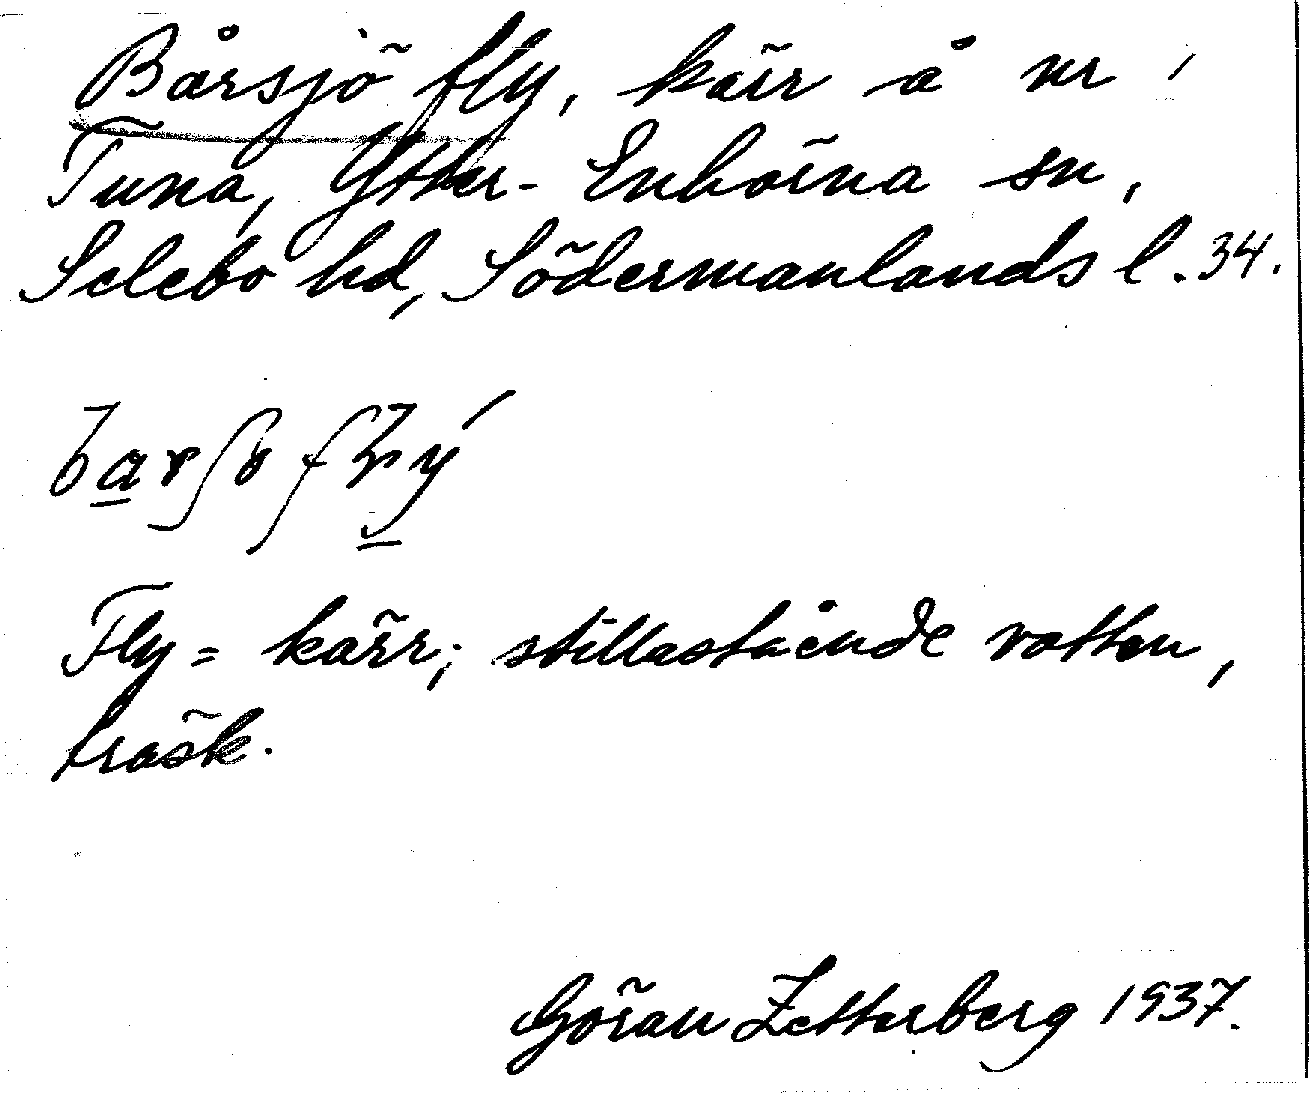 Bårsjö fly, kärr å nr 1
Tuna, Ytter-Enhörna sn,
Selebo hd, Södermanlands l. 34.
Fly = kärr; stillastående vatten,
träsk.
Göran Zetterberg 1937.